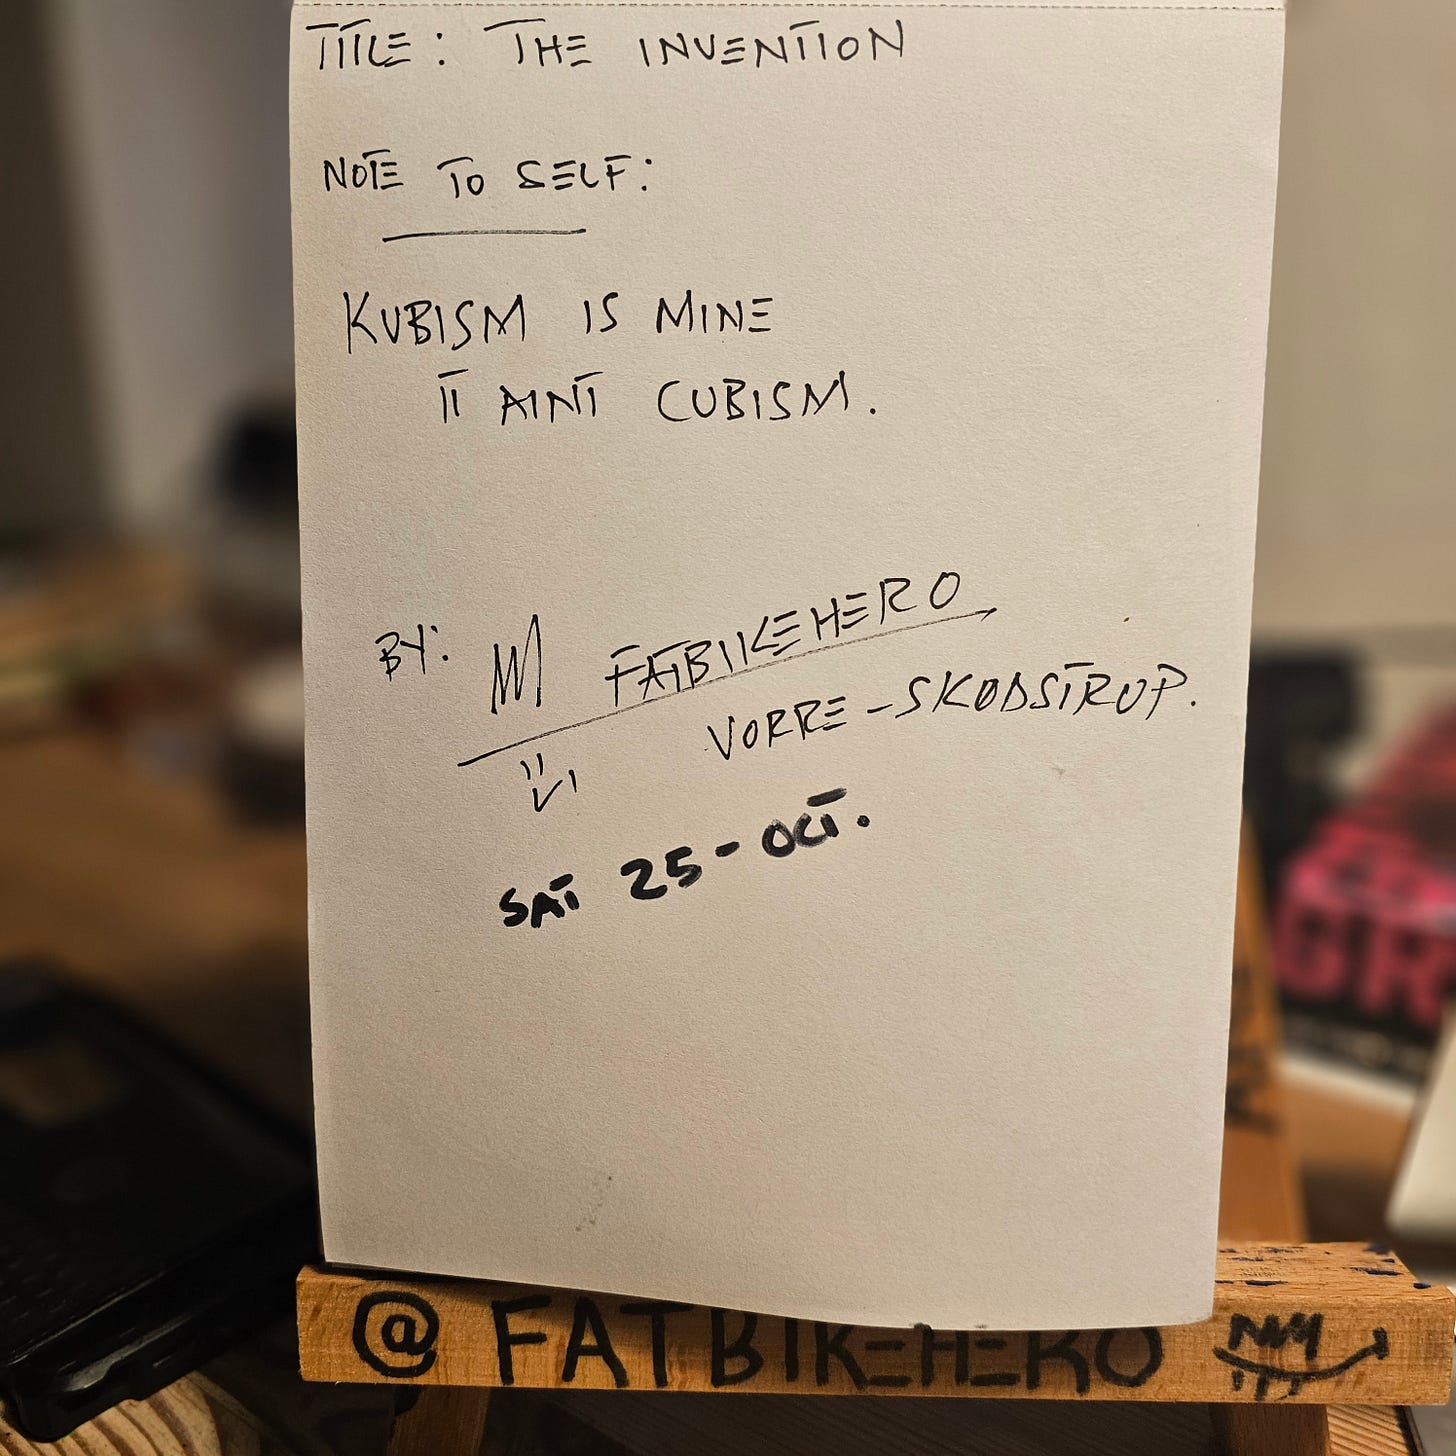 TITLE: THE INVENTION
NOTE TO SELF:
KUBISM IS MINE
IT AINT CUBISM.
BY: FATBIKEHERO
VORRE-SKØDSTRUP.
SAT 25-OCT.
@FATBIKEHERO